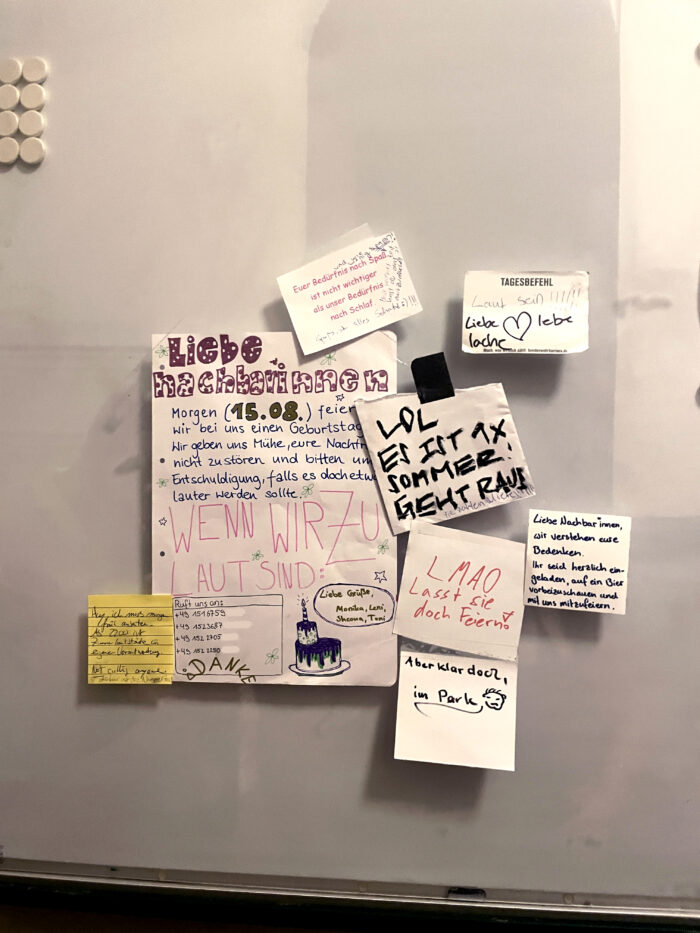 Euer Bedürfnis nach Spaß
ist nicht wichtiger
als unser Bedürfnis
nach Schlaf
TAGESBEFEHL
Laut sein !!!!!!
Liebe ♡ lebe
lache
Liebe
nachbarinnen
Morgen (15.08.) feier
wir bei uns einen Geburtstag
Wir geben uns Mühe, eure Nachtr
nicht zu stören und bitten um
Entschuldigung, falls es doch etw
lauter werden sollte.
WENN WIR ZU
LAUT SIND:
Ruft uns an:
+49 1516759
+49 1523687
+49 152 2705
+49 152 2280
¡DANKE
Liebe Grüße,
Monika, Leni,
Toni
LOL
ES IST 1X
SOMMER!
GEHT RAUS
LMAO
Lasst sie
doch Feiern!
Liebe Nachbar:innen,
wir verstehen eure
Bedenken.
Ihr seid herzlich ein-
geladen, auf ein Bier
vorbeizuschauen und
mit uns mitzufeiern.
Aber klar doch,
im Park
Hey, ich muss morgen
früh arbeiten.
Ab 22:00 ist
Zimmerlautstärke in
eigener Verantwortung